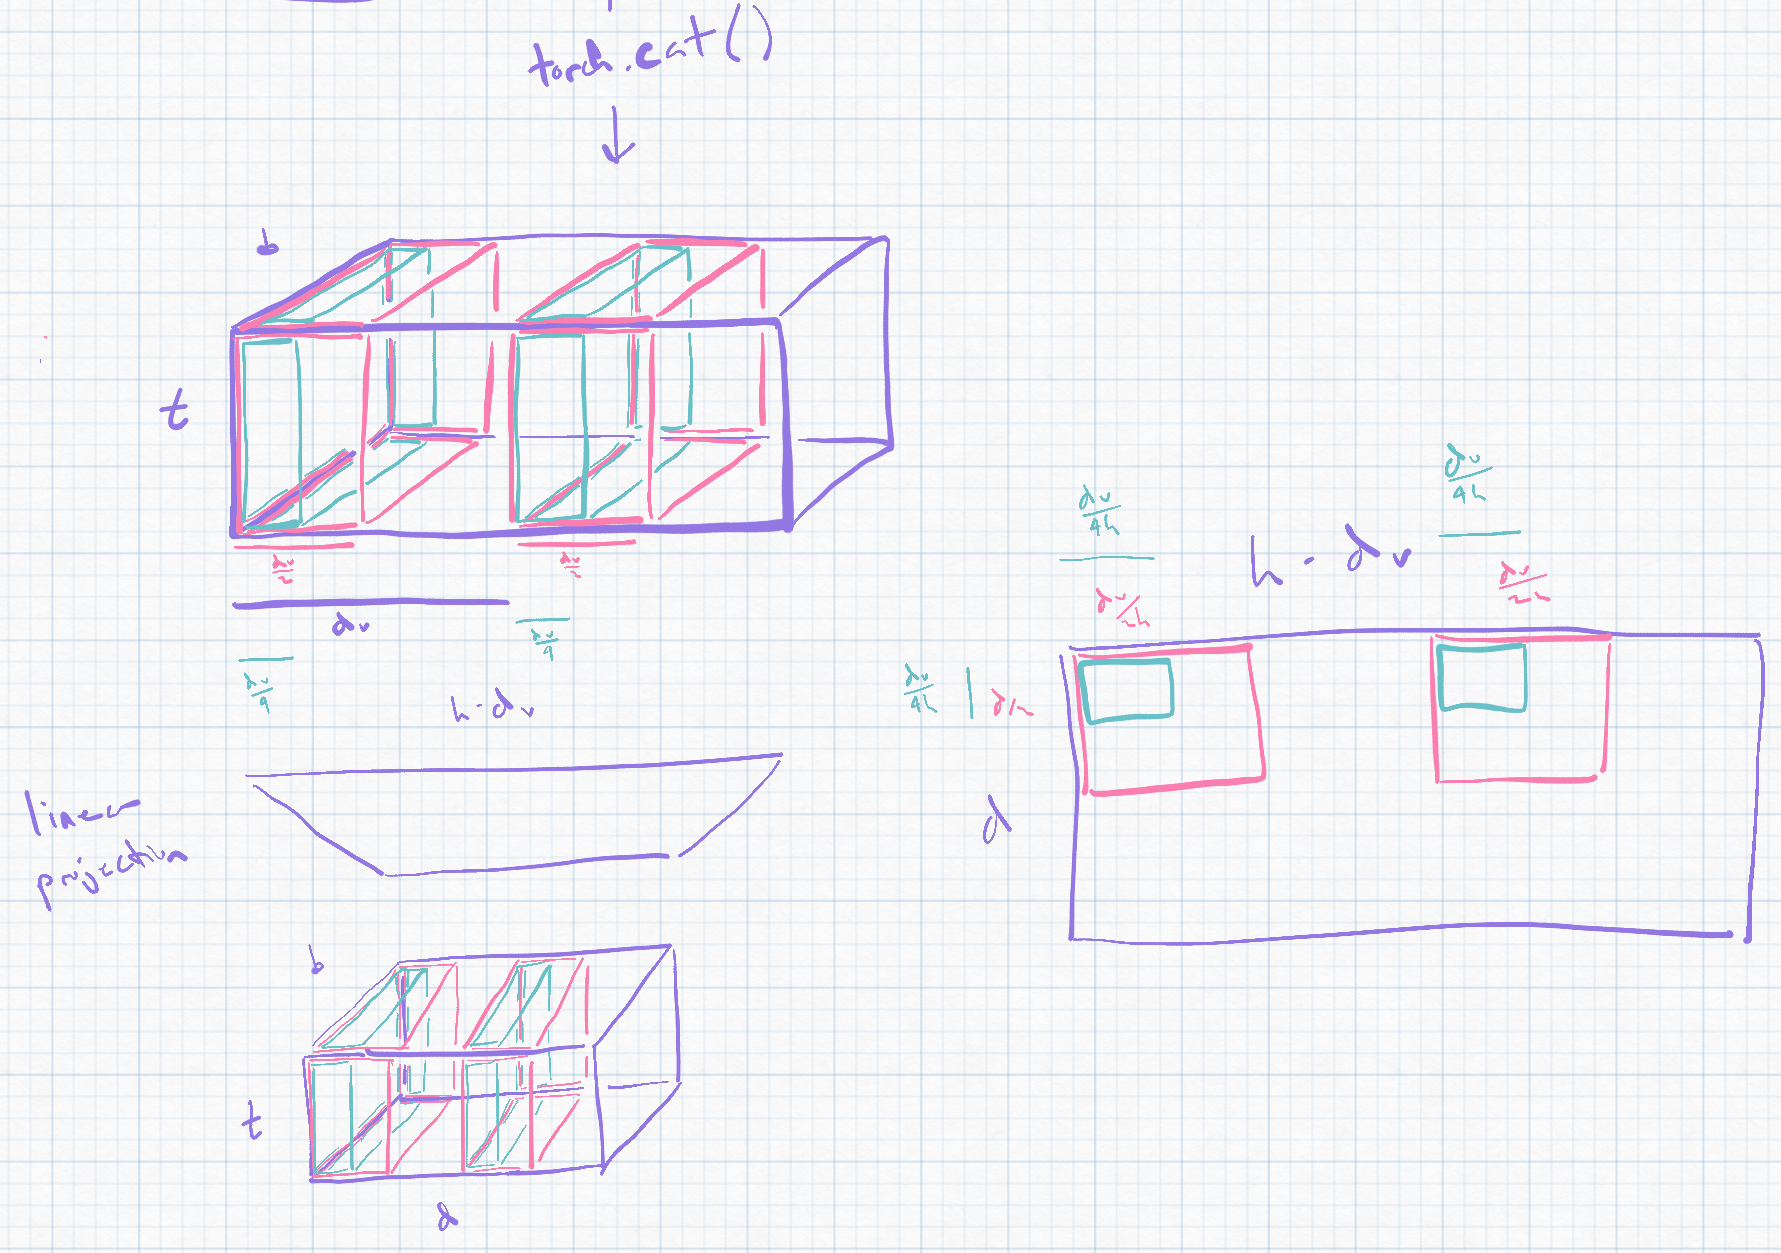 torch.cat()
b
t
dv/2
dv/2
dv
dv/4
dv/4
h·dv
linear projection
b
t
d
dv/4h
dv/4h
h·dv
dv/2h
dv/2h
dv/4h
d